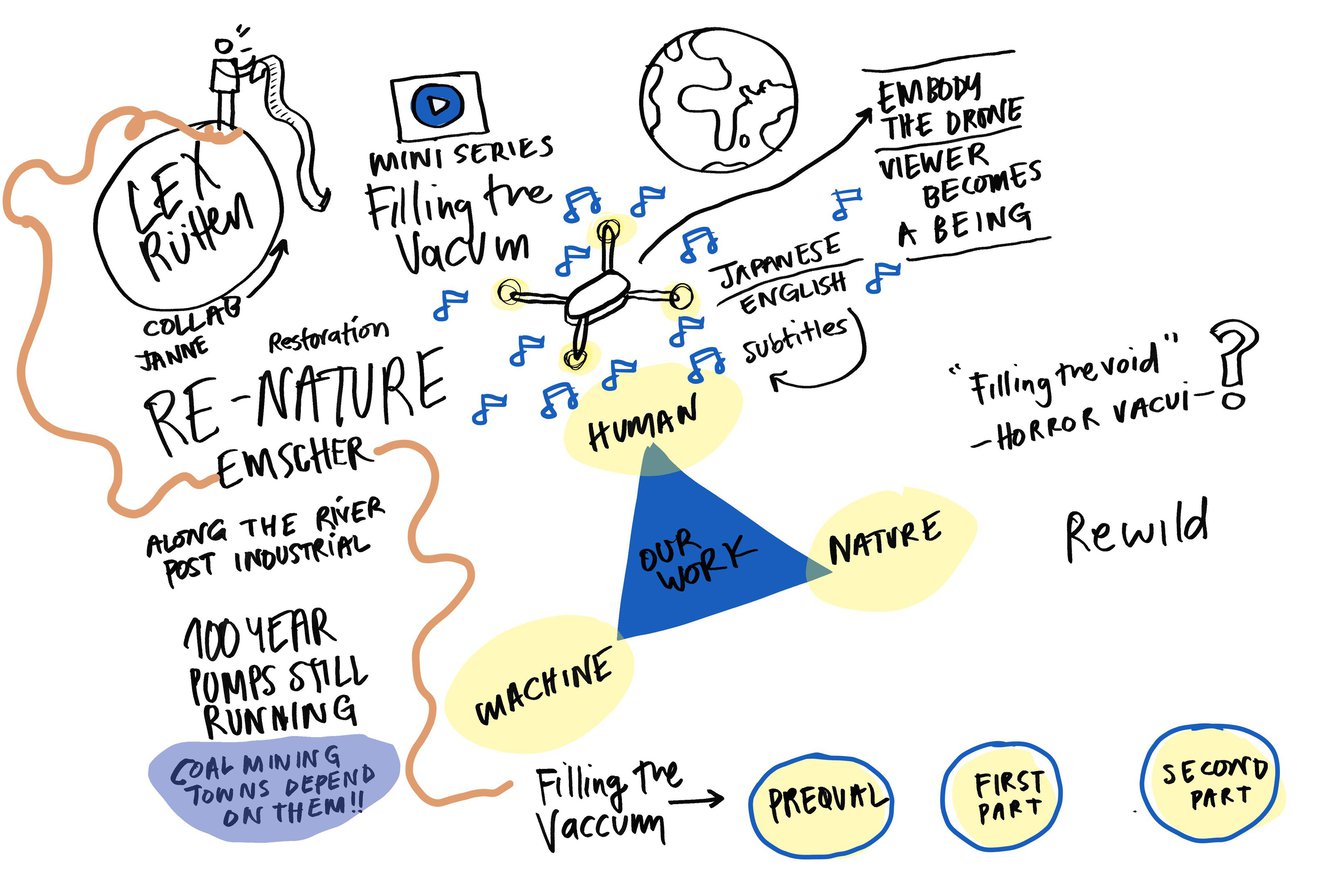 LEX
RÜTTEN
COLLAB
JANNE
MINI SERIES
Filling the
Vacum
EMBODY
THE DRONE
VIEWER
BECOMES
A BEING
JAPANESE
ENGLISH
subtitles
Restoration
RE-NATURE
EMSCHER
ALONG THE RIVER
POST INDUSTRIAL
100 YEAR
PUMPS STILL
RUNNING
COAL MINING
TOWNS DEPEND
ON THEM!!
HUMAN
OUR
WORK
NATURE
MACHINE
"Filling the void"
-HORROR VACUI-?
Rewild
Filling the
Vaccum
PREQUAL
FIRST
PART
SECOND
PART